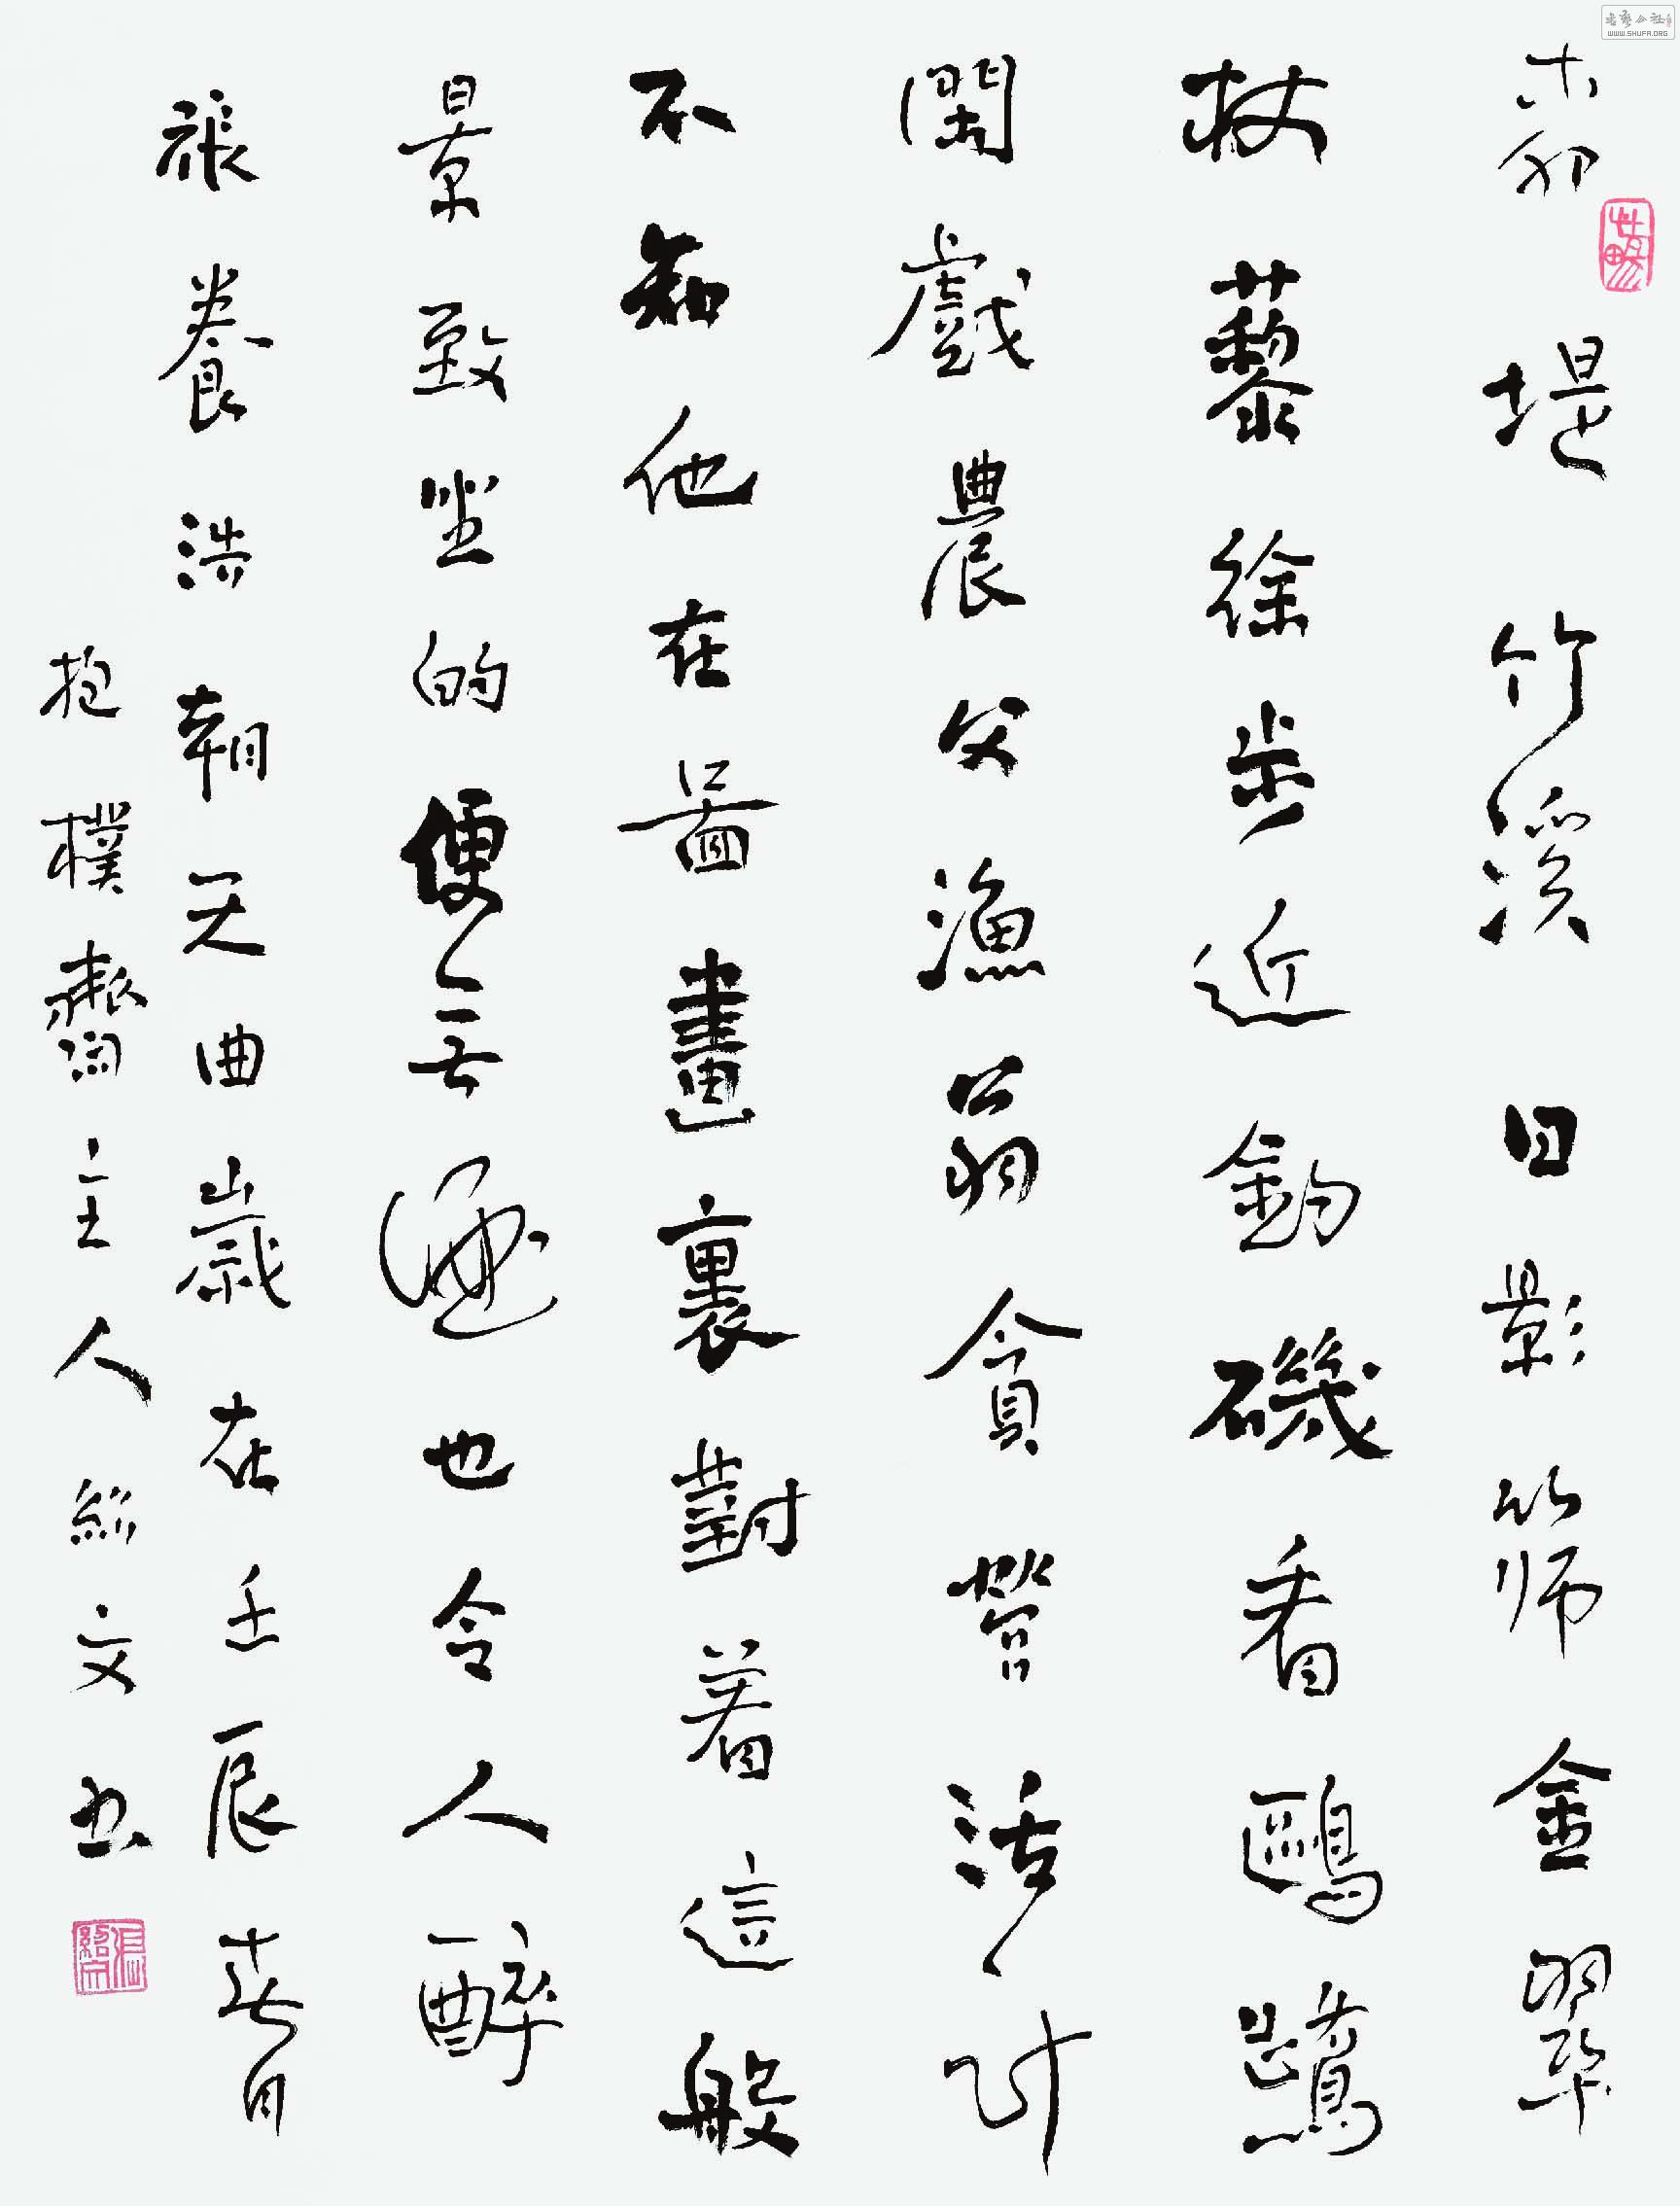 书艺公社
WWW.SHUFA.ORG
桺堤竹溪日影篩金翠
杖藜徐步近釣磯看鷗鷺
閑戲農父漁翁貪營活計
不知他在圖畫裏對著這般
景致坐的便無酒也令人醉
張養浩朝天曲歲在壬辰春日
抱樸齋主人紹文书